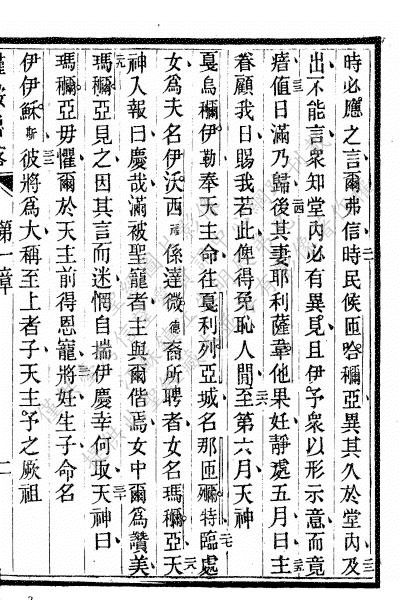 時必應之言爾弗信時民候匝哈稱亞異其久於堂內及
出不能言衆知堂內必有異見且伊予衆以形示意而竟
瘖值日滿乃歸後其妻耶利薩韋他果妊靜處五月曰主
眷顧我日賜我若此俾得免恥人間至第六月天神
戛烏稱伊勒奉天主命往戛利列亞城名那匝彌特臨處
女爲夫名伊沃西福係達微德裔所聘者女名瑪稱亞天
神入報曰慶哉滿被聖寵者主與爾偕焉女中爾爲讚美
瑪稱亞見之因其言而迷惘自揣伊慶幸何取天神曰
瑪稱亞毋懼爾於天主前得恩寵將妊生子命名
伊伊穌斯彼將爲大稱至上者子天主予之厥祖
第一章
二